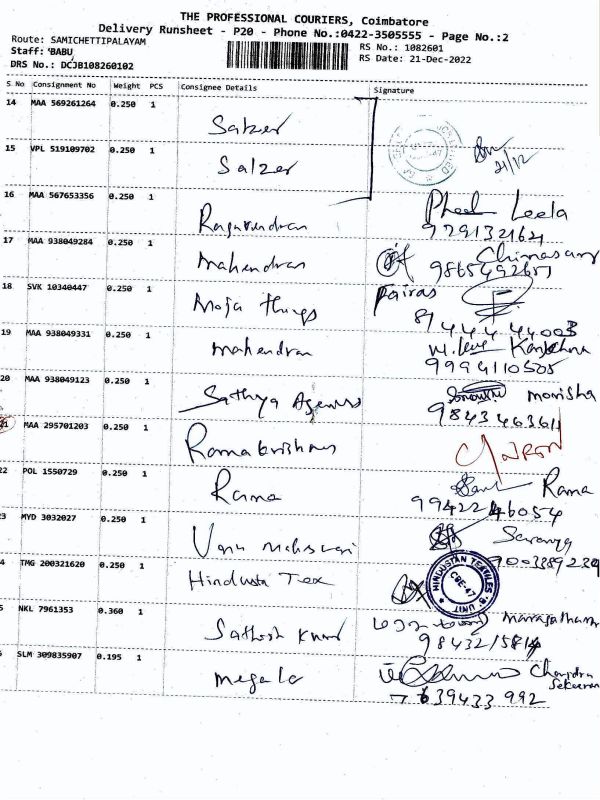 THE PROFESSIONAL COURIERS, Coimbatore
Delivery Runsheet - P20 - Phone No.:0422-3505555 - Page No.:2
Route: SAMICHETTIPALAYAM
RS No.: 1082601
Staff: BABU
RS Date: 21-Dec-2022
DRS No.: DCJB108260102
S No Consignment No Weight PCS Consignee Details Signature
14 MAA 569261264 0.250 1 Salzer
21/12
15 VPL 519109702 0.250 1 Salzer
16 MAA 567653356 0.250 1 Leela
9791321621
17 MAA 938049284 0.250 1 Mahendran
9865492657
18 SVK 10340447 0.250 1 Moja Things Fairas
19 MAA 938049331 0.250 1 Mahendran
9994110505
20 MAA 938049123 0.250 1 Sathya Agencies monisha
MAA 295701203 0.250 1 Ramakrishnan
POL 1550729 0.250 1 Rama Rama
MYD 3032027 0.250 1 Saranya
TMG 200321620 0.250 1 Hindusta Tex
HINDUSTAN TEXTILES 'B' UNIT
CBE-47
NKL 7961353 0.360 1 Sathosh Kumar
SLM 309835907 0.195 1 Megala Chandra
Sekaran
7639433 992